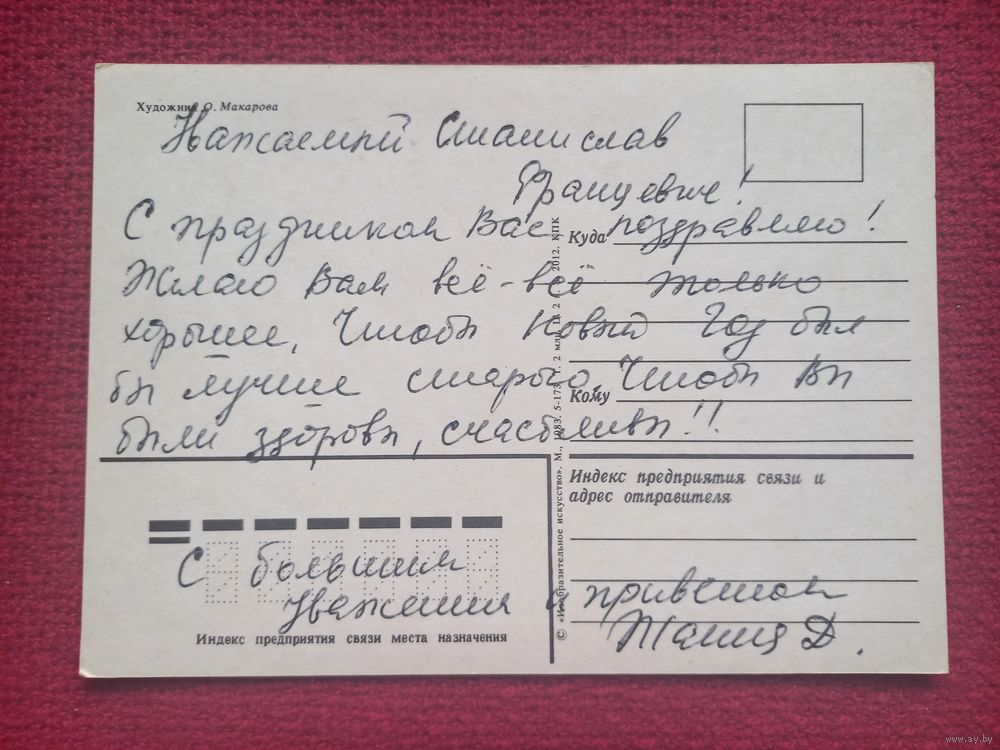 Художник О. Макарова
Уважаемый Станислав
Францевич!
С праздником Вас поздравляю!
Куда
Желаю Вам всё-всё только
хорошее, Чтобы Новый Год был
бы лучше старого, Чтобы Вы
Кому
были здоровы, счастливы!!
Индекс предприятия связи и
адрес отправителя
С большим
уважением и приветом
Индекс предприятия связи места назначения
© «Изобразительное искусство». М., 1983. 5-173. Т. 2 млн. Ц 2 2012. КПК
www.ay.by